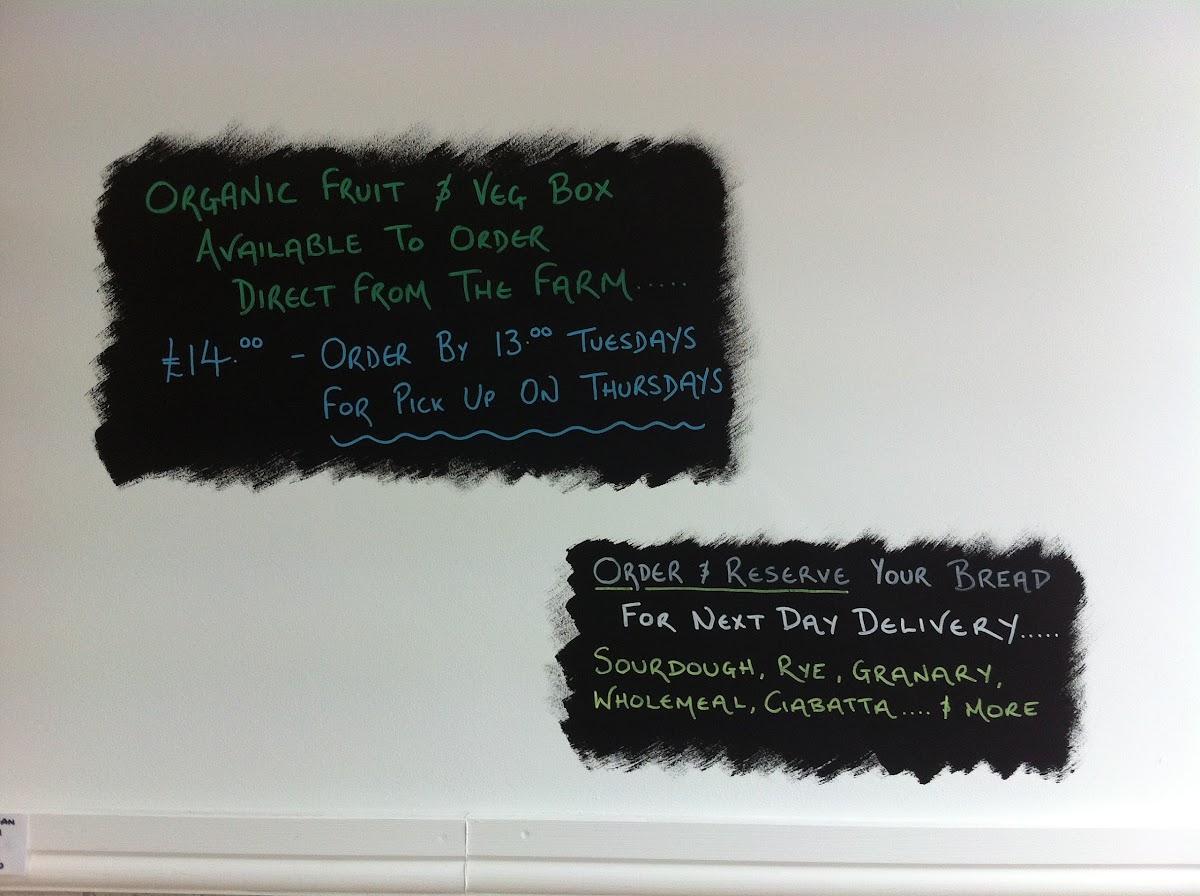 ORGANIC FRUIT & VEG BOX
AVAILABLE TO ORDER
DIRECT FROM THE FARM.....
£14.00 - ORDER BY 13.00 TUESDAYS
FOR PICK UP ON THURSDAYS
ORDER & RESERVE YOUR BREAD
FOR NEXT DAY DELIVERY.....
SOURDOUGH, RYE, GRANARY,
WHOLEMEAL, CIABATTA.... & MORE